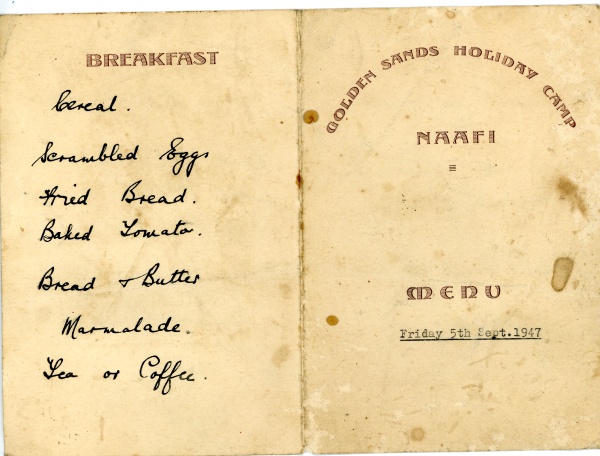 BREAKFAST
Cereal.
Scrambled Eggs
Fried Bread.
Baked Tomato.
Bread & Butter
Marmalade.
Tea or Coffee.
GOLDEN SANDS HOLIDAY CAMP
NAAFI
MENU
Friday 5th Sept.1947